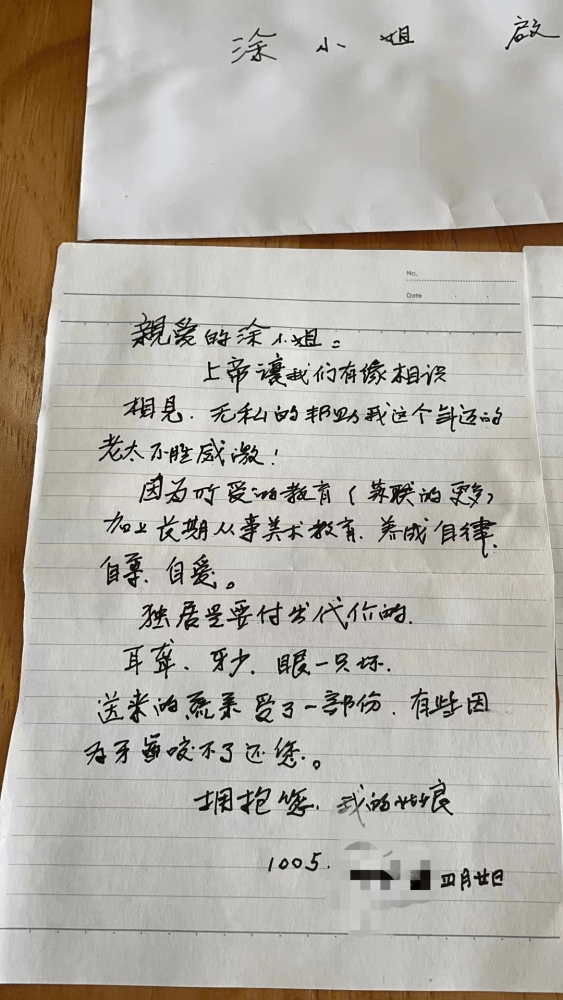 涂小姐 啟
No.
Date
親爱的涂小姐:
上帝讓我们有缘相识
相見. 无私的帮助我这个年迈的
老太不胜感激!
因为所受的教育(苏联的更多)
加上长期从事美术教育. 养成自律.
自尊. 自爱。
独居是要付出代价的.
耳聋、牙少. 眼一只坏.
送来的蔬菜受了一部份. 有些因
为牙 咬不了还您。
拥抱您. 我的姑娘
1005.
四月廿日